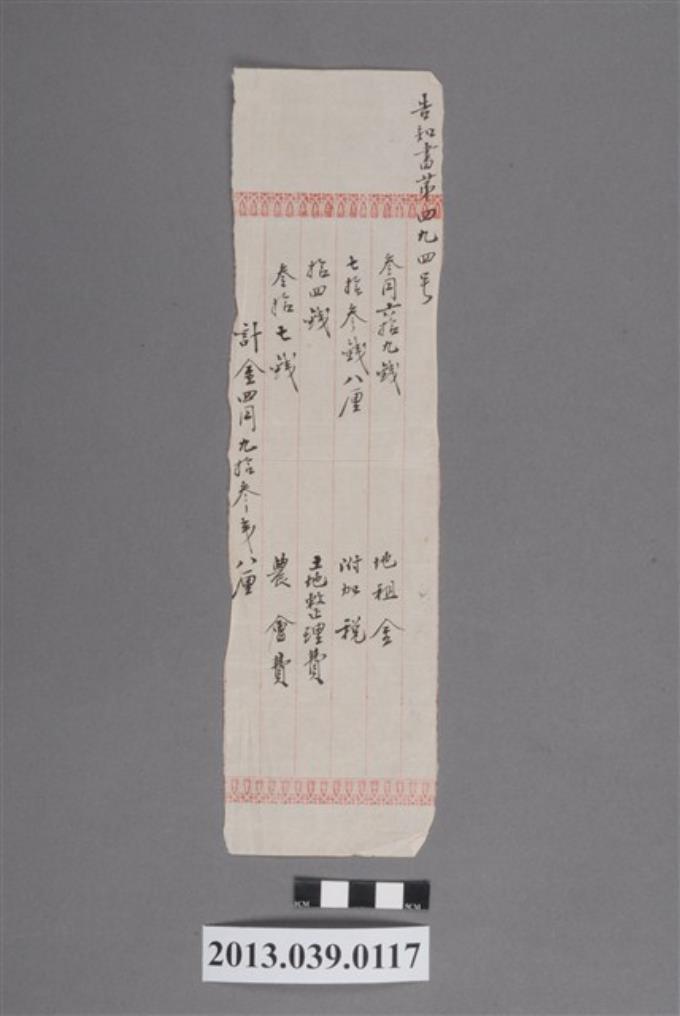 告知書第四九四号
叁円六拾九錢 地租金
七拾叁錢八厘 附加税
拾四錢 土地整理費
叁拾七錢 農會費
計金四円九拾叁銭八厘
1CM 5CM
2013.039.0117